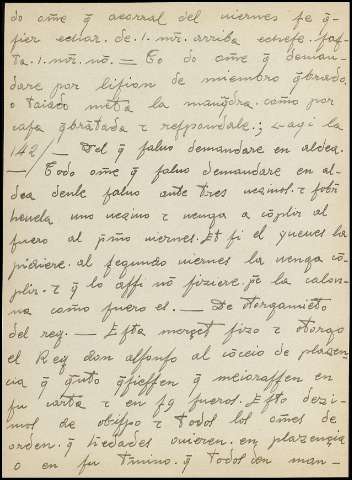 do om̃e q̃ acorral del viernes fe q̃-
fier echar. de .1. mr̃. arriba echefe. faf-
ta .1. mr̃. nõ. = To do om̃e q̃ deman-
dare por lifion de miembro q̃brado
o taiado meta la manq̃dra. como por
cafa q̃brãtada τ refpondale. ; aqi la
142/— Del q̃ faluo demandare en aldea.
—/ Todo om̃e q̃ faluo demandare en al-
dea denle faluo ante tres uezinos. τ fobre
leuela uno uezino τ uenga a cõplir al
fuero al pm̃o uiernes. Et fi el iueues la
pidiere. al fegundo uiernes la uenga cõ-
plir. τ q̃ lo affi nõ fiziere. pc̃e la calon-
na como fuero es. — De otorgamiẽto
del rey. — Efta merçet fizo τ otorgo
el Rey don alfonfo al cõceio de plazen-
cia q̃ q̃nto q̃fieffen q̃ meioraffen en
fu carta τ en fg fueros. Efto dezi-
mos de obifpo τ todos los om̃es de
orden. q̃ hedades ouieren. en plazençia
o en fu tm̃ino. q̃ todos den man-